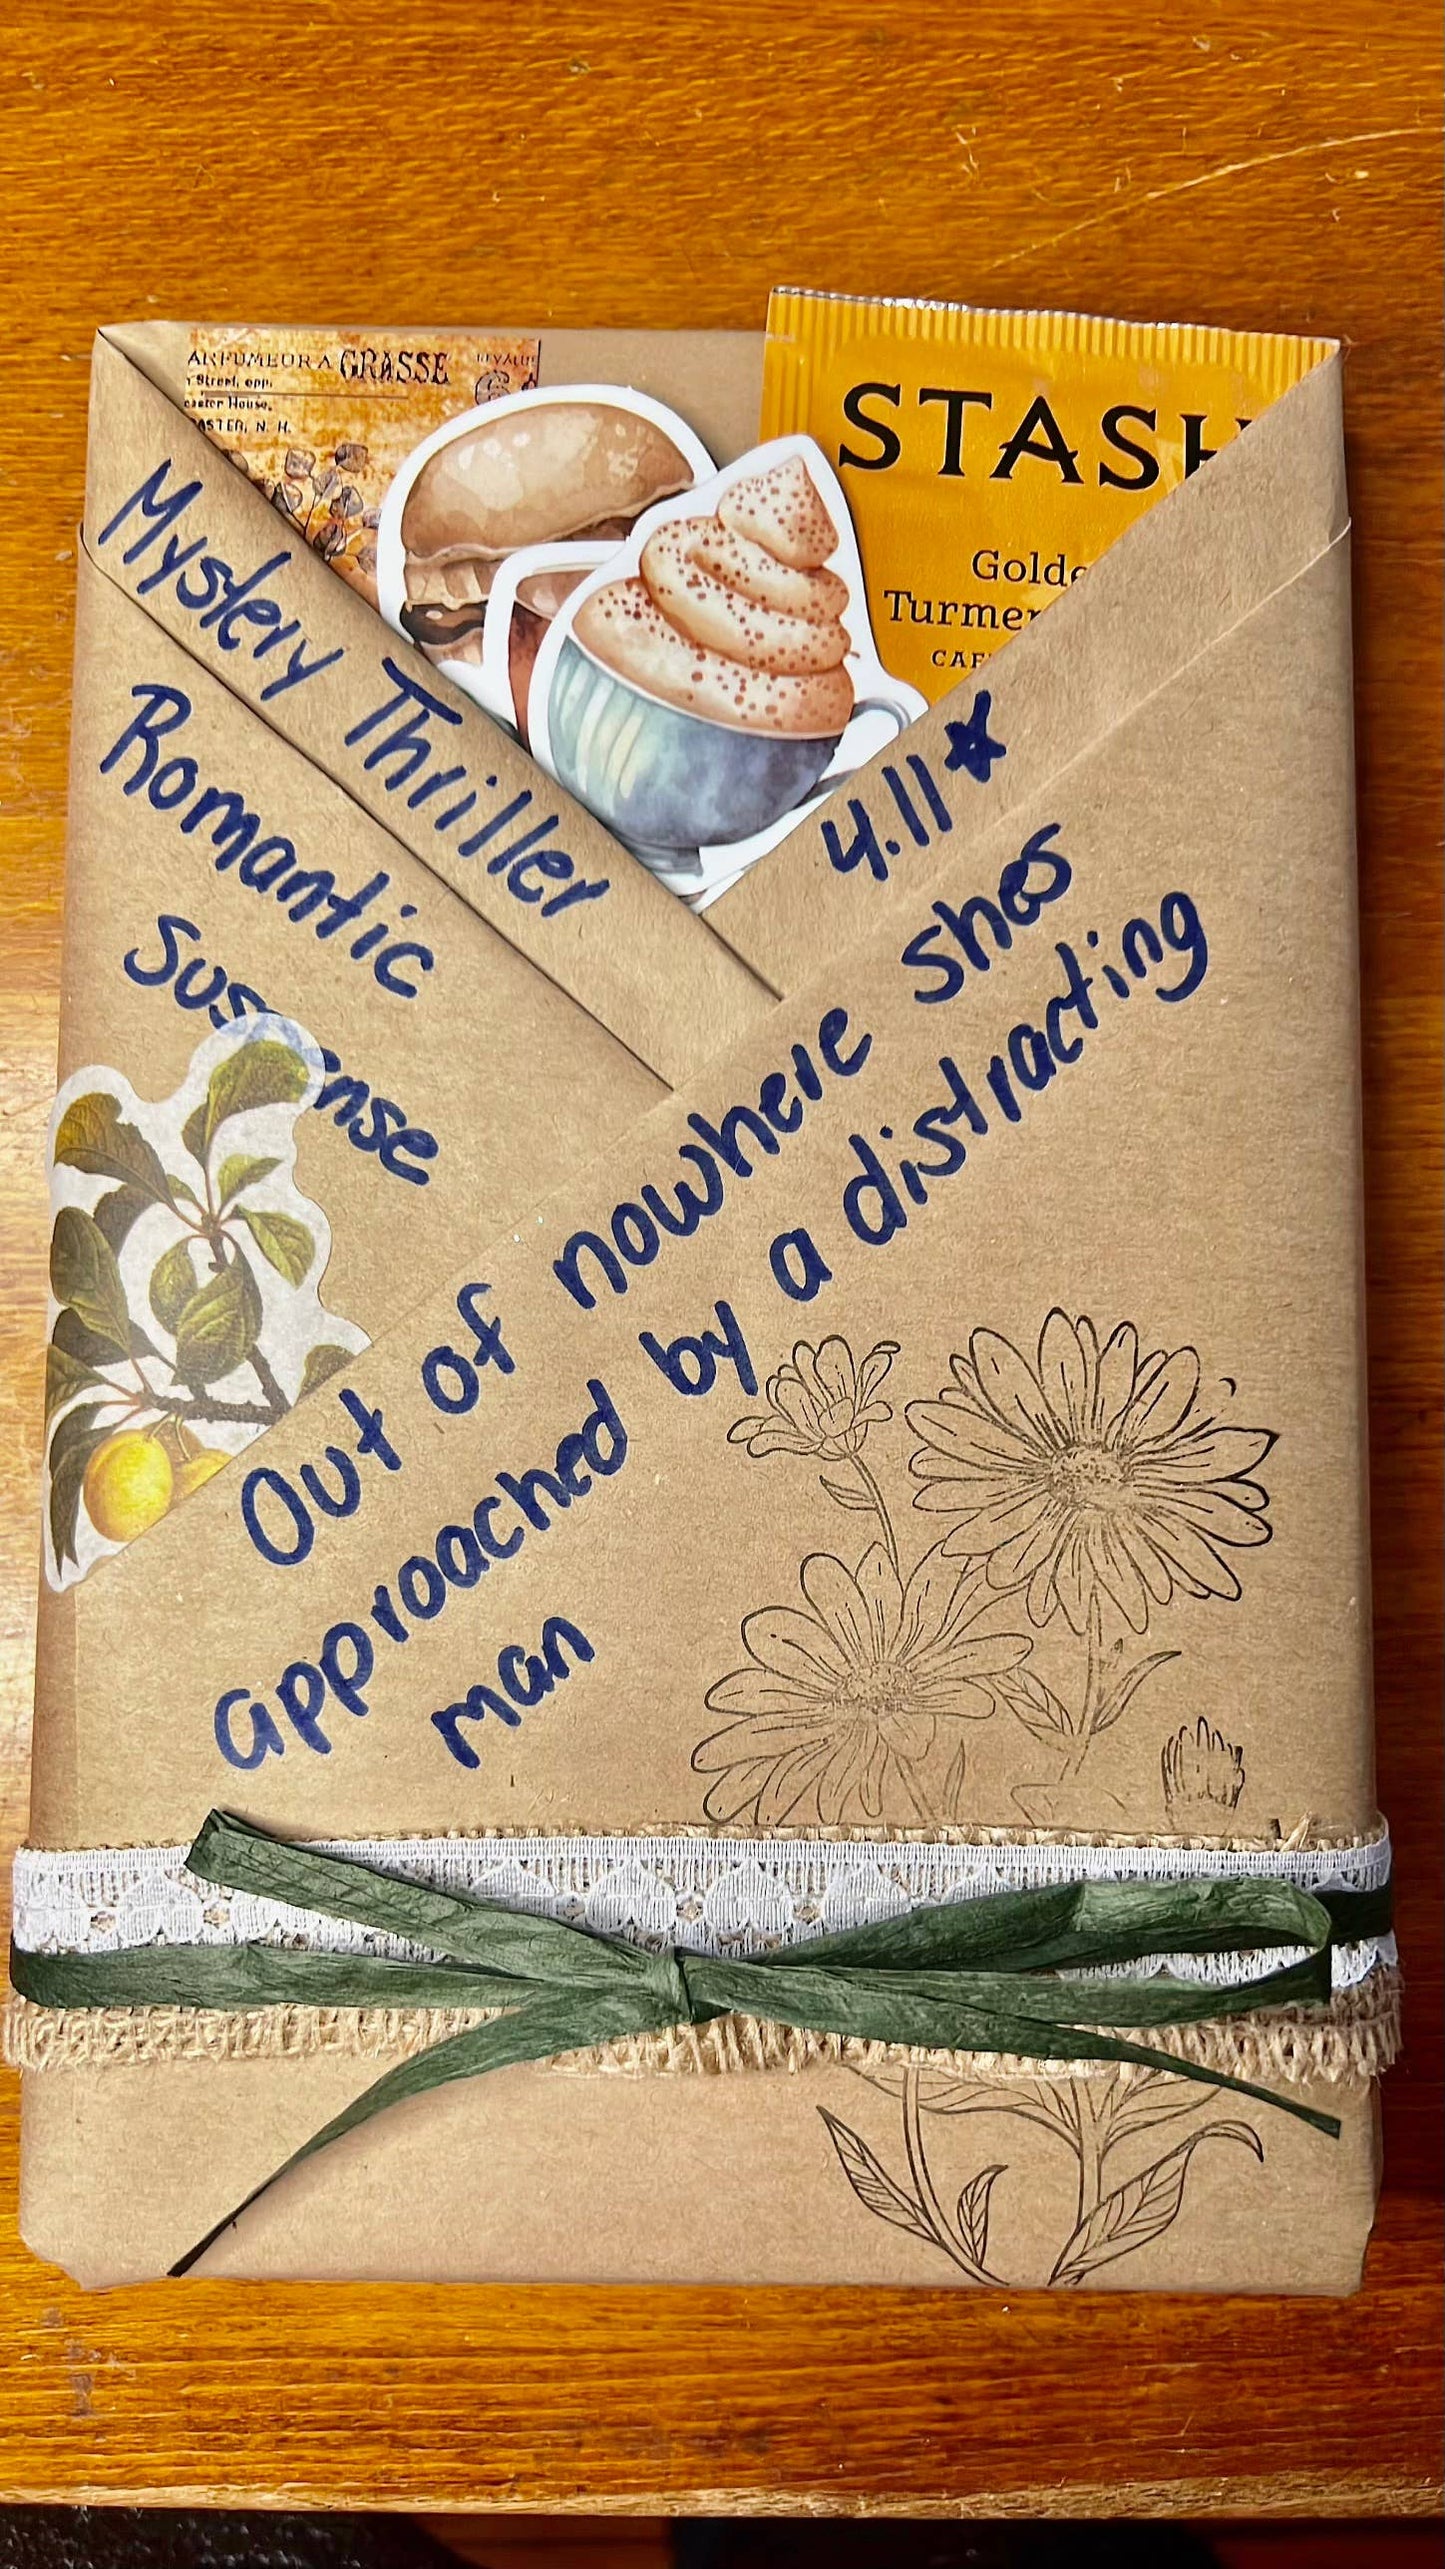 ARFUMEUR A GRASSE
Street, opp.
caster House,
ASTER, N. H.
STASH
Golde
Turme
CAF
Mystery Thriller
Romantic
Sus ense
4.11★
Out of nowhere shes
approached by a distracting
man